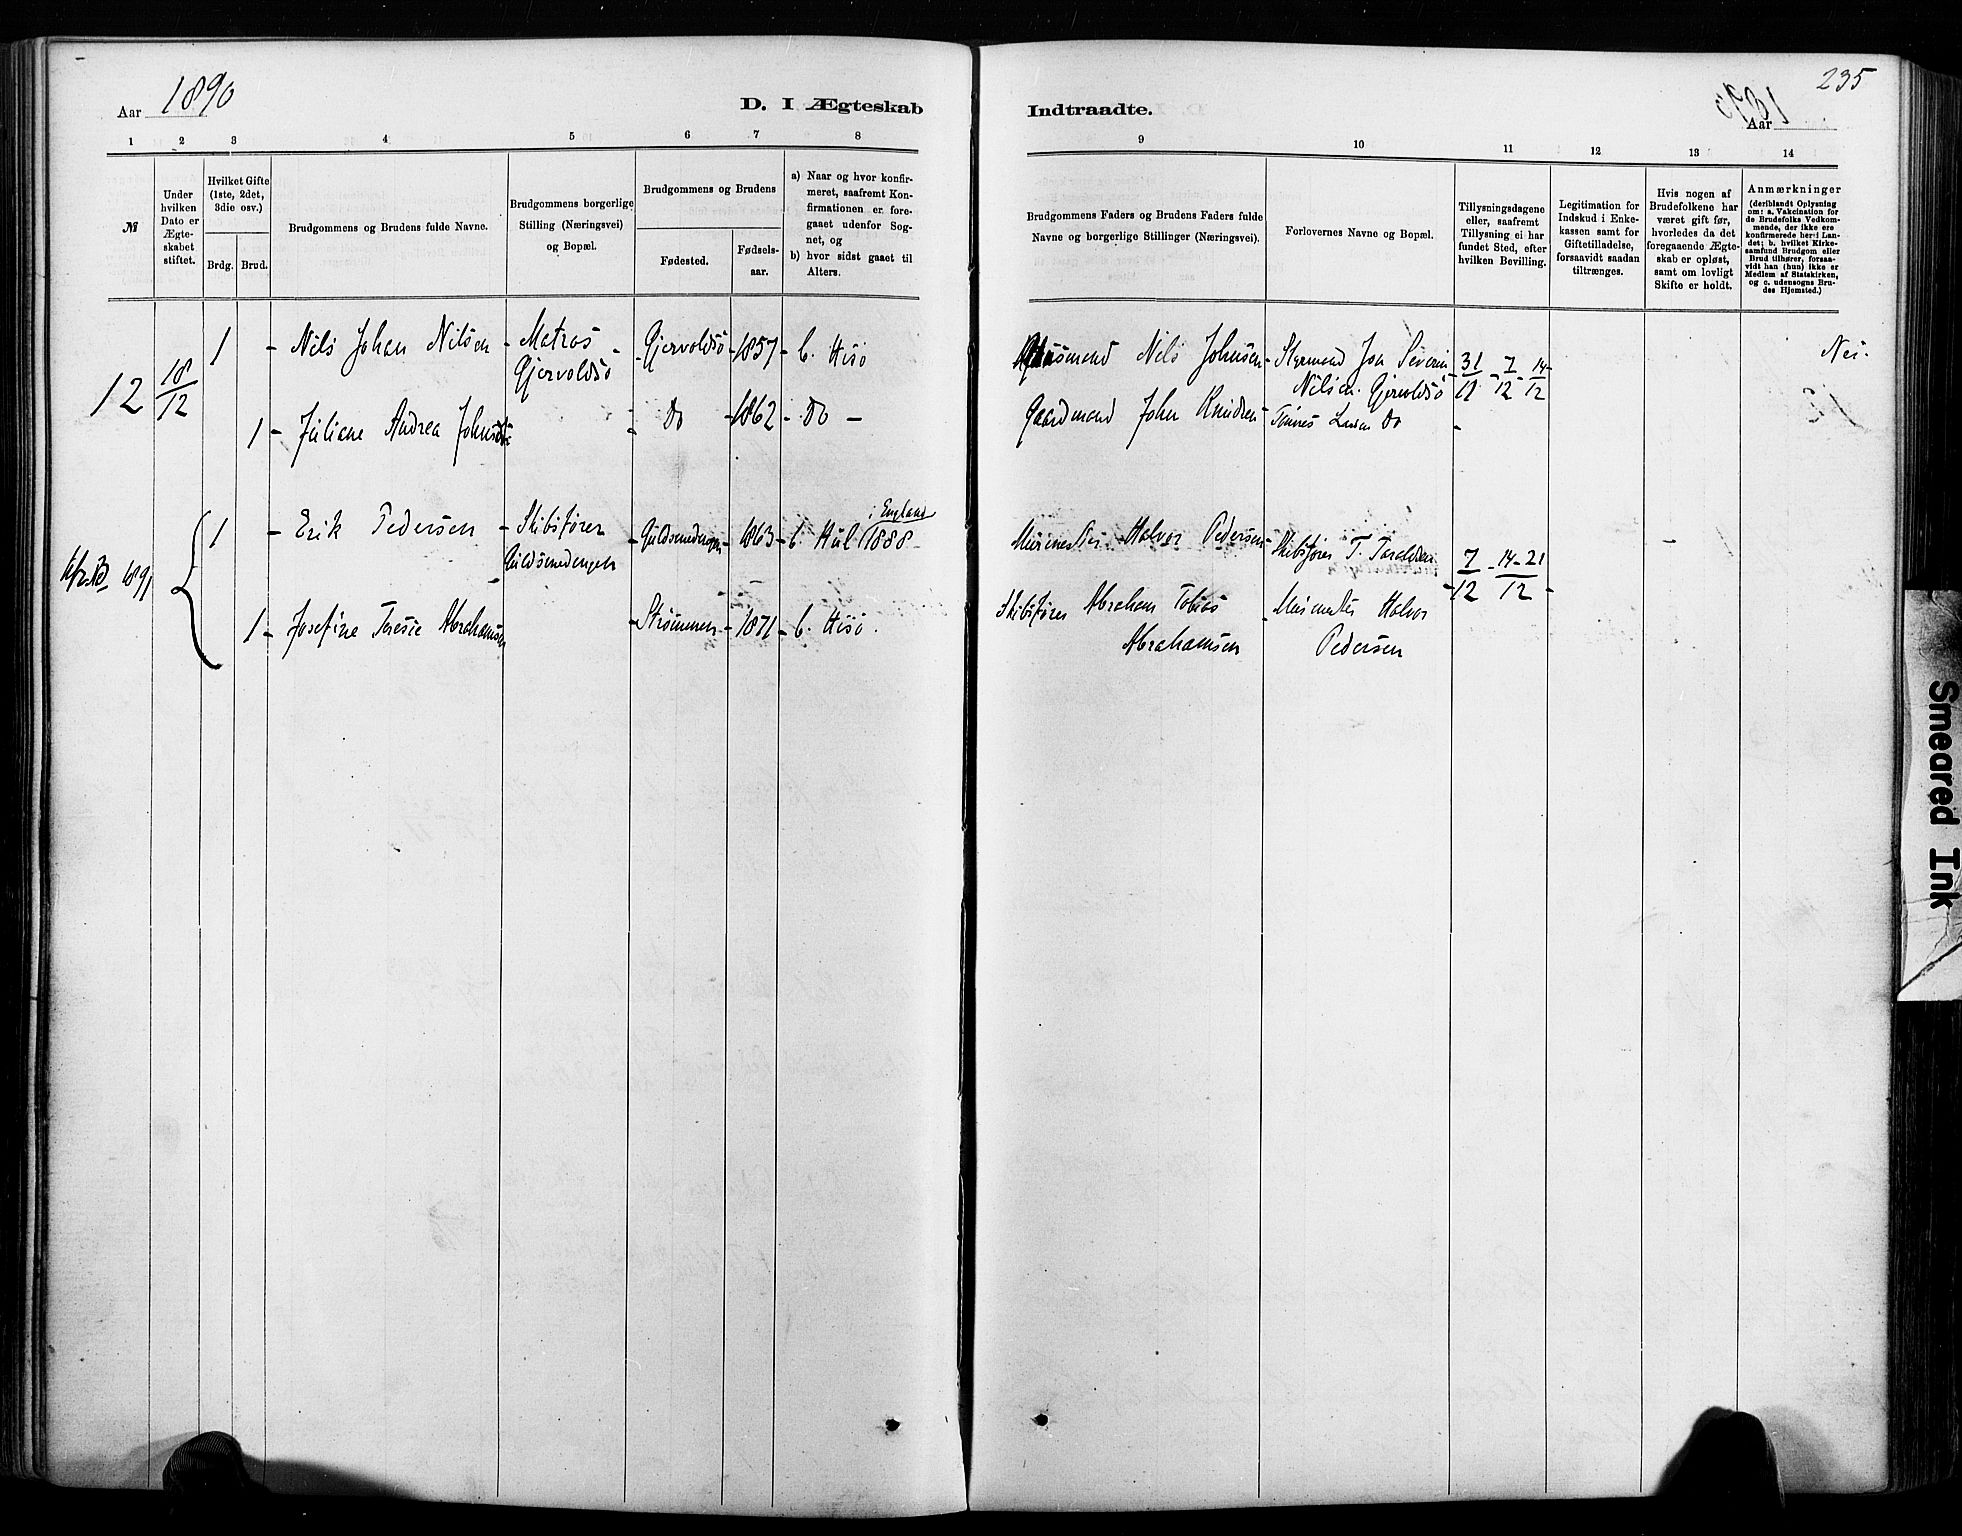 Aar 1890
D. I Ægteskab
Indtraadte.
Aar
235
1 2 3 4 5 6 7 8
9 10 11 12 13 14
№
Under hvilken Dato er Ægteskabet stiftet.
Hvilket Gifte (1ste, 2det, 3die osv.)
Brdg. Brud.
Brudgommens og Brudens fulde Navne.
Brudgommens borgerlige Stilling (Næringsvei) og Bopæl.
Brudgommens og Brudens
Fødested.
Fødselsaar.
a) Naar og hvor konfirmeret, saafremt Konfirmationen er foregaaet udenfor Sognet, og
b) hvor sidst gaaet til Alters.
Brudgommens Faders og Brudens Faders fulde Navne og borgerlige Stillinger (Næringsvei).
Forlovernes Navne og Bopæl.
Tillysningsdagene eller, saafremt Tillysning ei har fundet Sted, efter hvilken Bevilling.
Legitimation for Indskud i Enkekassen samt for Giftetilladelse, forsaavidt saadan tiltrænges.
Hvis nogen af Brudefolkene har været gift før, hvorledes da det foregaaende Ægteskab er opløst, samt om lovligt Skifte er holdt.
Anmærkninger (deriblandt Oplysning om: a. Vakcination for de Brudefolks Vedkommende, der ikke ere konfirmerede her i Landet; b. hvilket Kirkesamfund Brudgom eller Brud tilhører, forsaavidt han (hun) ikke er Medlem af Statskirken, og c. udensogns Brudes Hjemsted.)
12 18/12 1 - Nils Johan Nilsen - Matros - Gjervoldsö - 1857 - b. Hisö
Gjervoldsö
Nils Johnsen - Styrmand Jon Severin Nilsen Gjervoldsö 31/11 - 7/12 - 14/12 Nei.
1 - Juliane Andrea - Do - 1862 - Do -
Gaardmand John Knudsen - Tönnes Larsen Do -
1891 1 - Erik Pedersen - Skibsfører - Guldsmedengen - 1863 - b. Hul i England 1888 -
Guldsmedengen
Halvor Pedersen - Skibsfører T. Taraldsen - 7/12 - 14-21/12 -
1 - Josefine Teresie Abrahamsen - Strømmen - 1871 - b. Hisö.
Skibsfører Abraham Tobias Abrahamsen - Murmester Halvor Pedersen
Smeared Ink